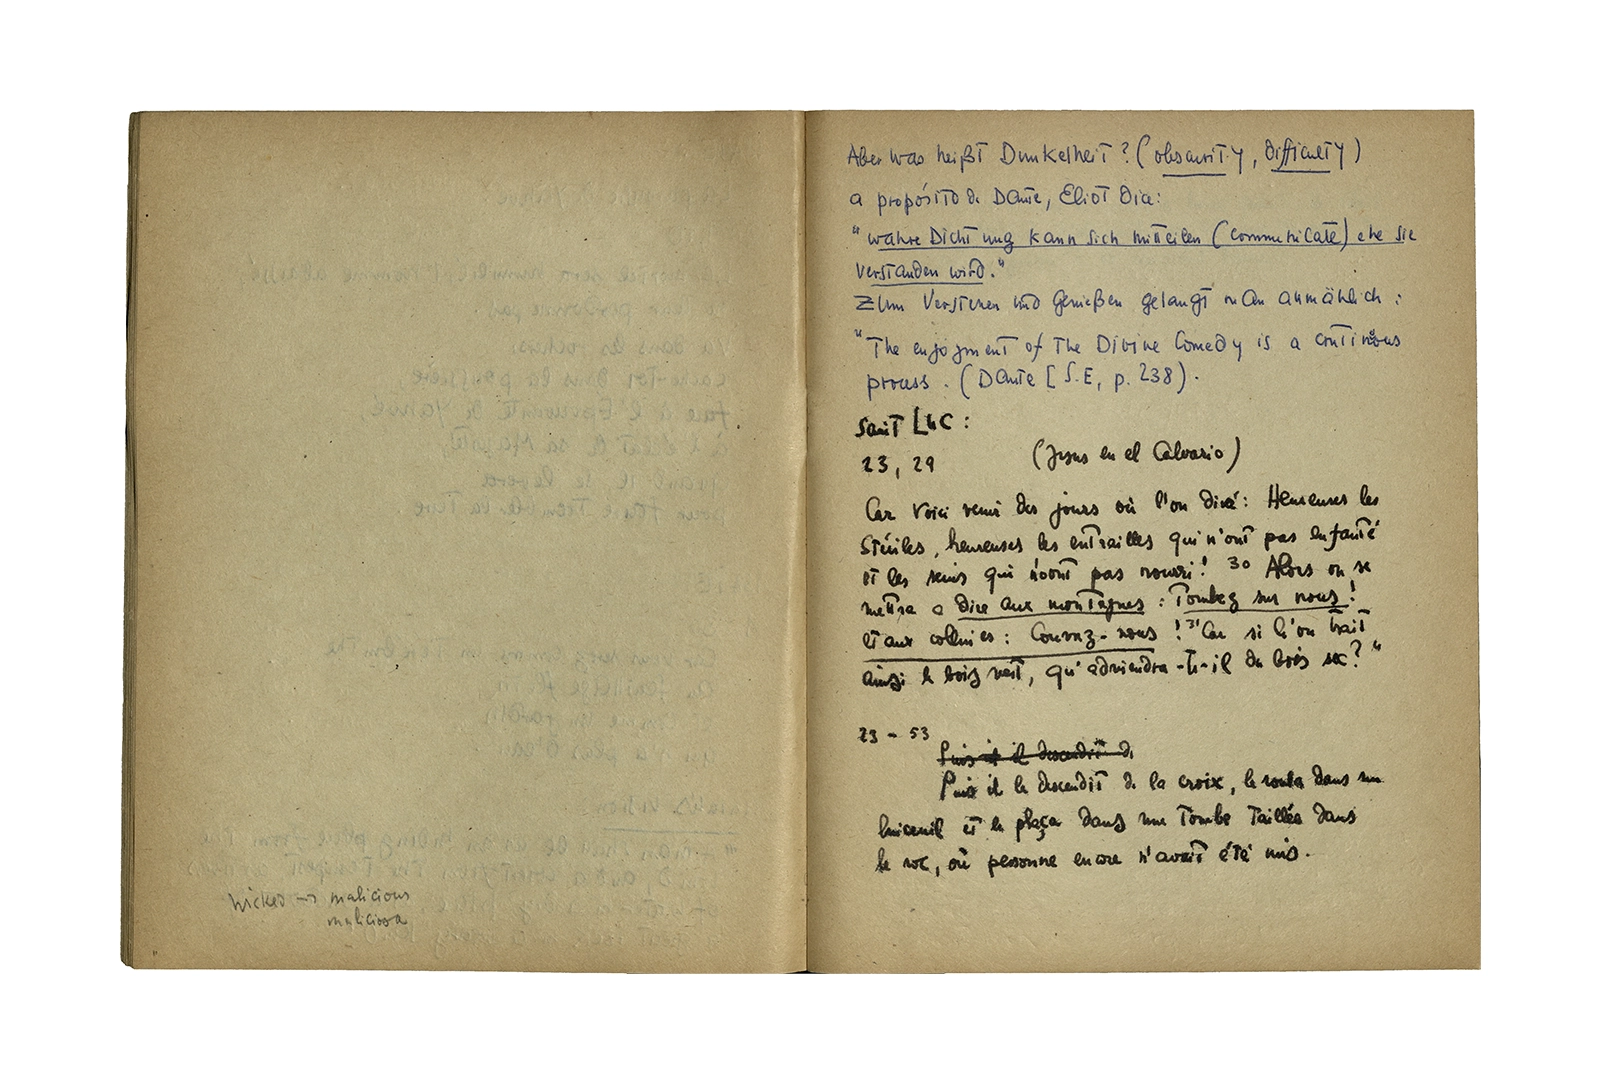 wicked → malicious
maliciosa
Aber was heißt Dunkelheit? (obscurity, difficulty)
a propósito de Dante, Eliot dice:
"wahre Dichtung kann sich mitteilen (communicate) ehe sie
verstanden wird."
Zum Verstehen und Genießen gelangt man allmählich:
"The enjoyment of the Divine Comedy is a continous
process. (Dante [S.E, p. 238).
Saint Luc:
23, 29 (Jesus en el Calvario)
Car voici venir des jours où l'on dira: Heureuses les
stériles, heureuses les entrailles qui n'ont pas enfanté
et les seins qui n'ont pas nourri! 30 Alors on se
mettra a dire aux montagnes: Tombez sur nous!
et aux collines: Couvrez-nous! 31 Car si l'on trait
ainsi le bois vert, qu'adviendra-t-il du bois sec?"
23 - 53
Puis il descendit de
Puis il le descendit de la croix, le roula dans un
linceuil et le plaça dans une tombe taillée dans
le roc, où personne encore n'avait été mis.